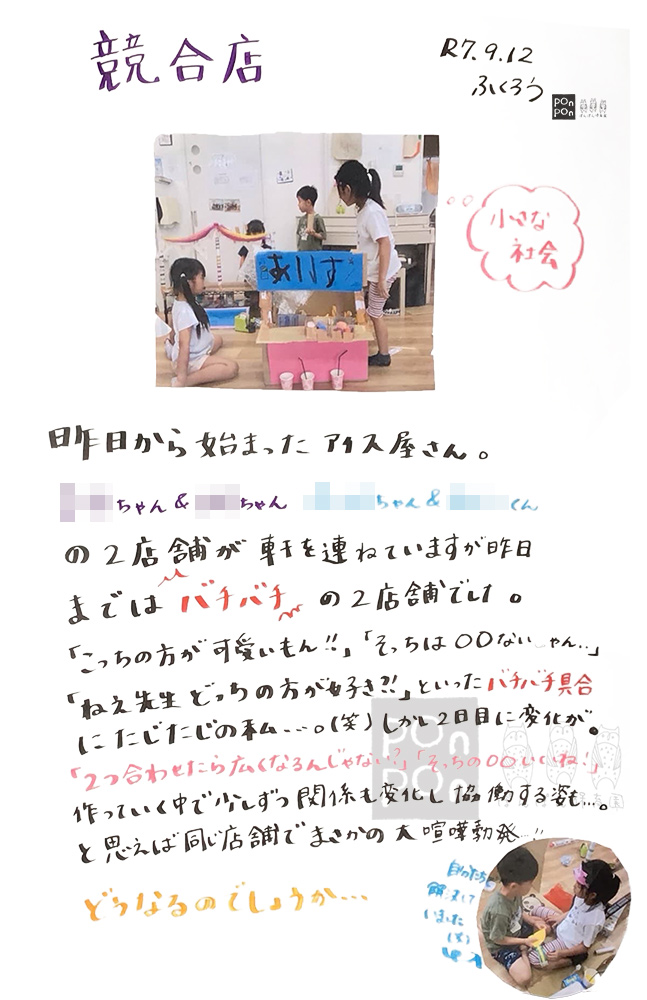 競合店
R7.9.12
ふくろう
pon pon
あいす
小さな
社会
昨日から始まったアイス屋さん。
ちゃん& ちゃん ちゃん& くん
の2店舗が軒を連ねていますが昨日
までは バチバチ の2店舗でした。
「こっちの方が可愛いもん!!」「そっちは〇〇ない ゃん..」
「ねえ先生どっちの方が好き?!」といったバチバチ具合
にたじたじの私...。(笑)しかし2日目に変化が。
「2つ合わせたら広くなるんじゃない?」「そっちの〇〇いいね!」
作っていく中で少しずつ関係も変化し協働する姿も...。
と思えば同じ店舗でまさかの大喧嘩勃発...!!
どうなるのでしょうか...
自分たちで
解決して
いました
(笑)
pon pon